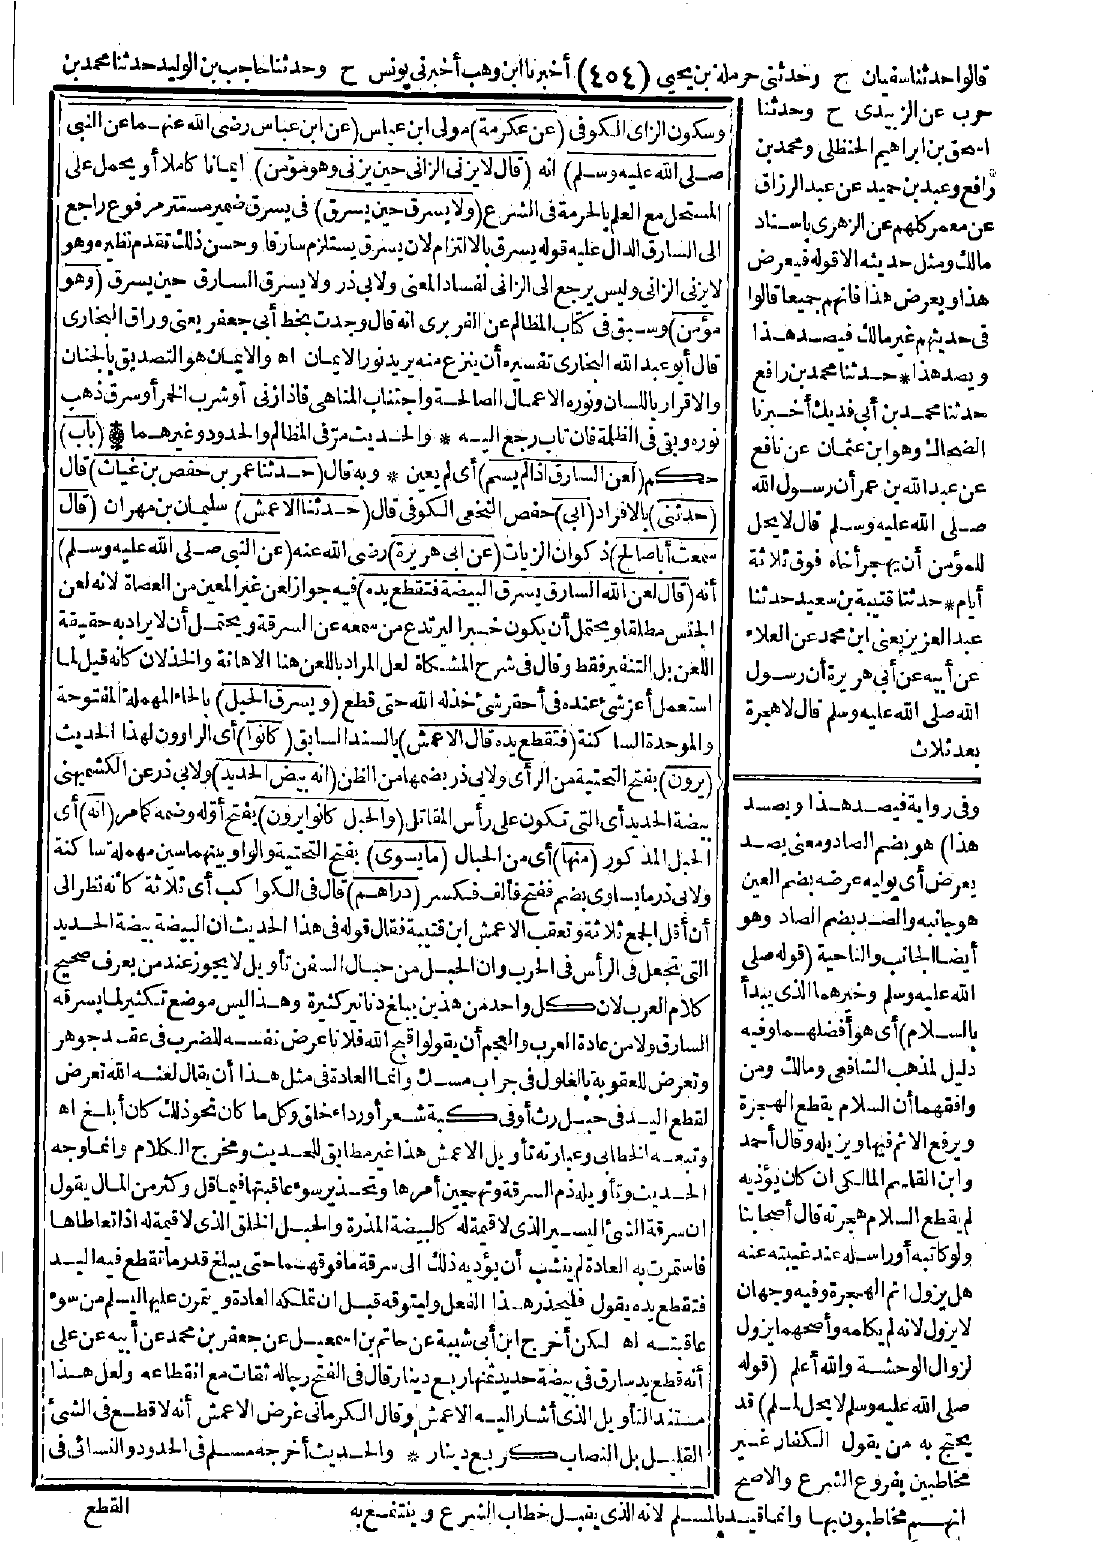 قالوا حدثنا سفيان ح وحدثنى حرملة بن يحيى (٤٥٤) أخبرنا ابن وهب أخبرنى يونس ح وحدثنا حاجب بن الوليد حدثنا محمد بن
حرب عن الزبيدى ح وحدثنا
اسحق بن ابراهيم الحنظلى ومحمد بن
رافع وعبد بن حميد عن عبد الرزاق
عن معمر كلهم عن الزهرى باسناد
مالك ومثل حديثه الا قوله فيعرض
هذا ويعرض هذا فانهم جميعا قالوا
فى حديثهم غير مالك فيصد هذا
ويصد هذا * حدثنا محمد بن رافع
حدثنا محمد بن أبى فديك أخبرنا
الضحاك وهو ابن عثمان عن نافع
عن عبد الله بن عمر أن رسول الله
صلى الله عليه وسلم قال لا يحل
للمؤمن أن يهجر أخاه فوق ثلاثة
أيام * حدثنا قتيبة بن سعيد حدثنا
عبد العزيز يعنى ابن محمد عن العلاء
عن أبيه عن أبى هريرة أن رسول
الله صلى الله عليه وسلم قال لا هجرة
بعد ثلاث
وفى رواية فيصد هذا ويصد
هذا) هو بضم الصاد ومعنى يصد
يعرض أى يوليه عرضه بضم العين
هو جانبه والصد بضم الصاد وهو
أيضا الجانب والناحية (قوله صلى
الله عليه وسلم وخيرهما الذى يبدأ
بالسلام) أى هو أفضلهما وفيه
دليل لمذهب الشافعى ومالك ومن
وافقهما أن السلام يقطع الهجرة
ويرفع الاثم فيها ويزيله وقال أحمد
وابن القاسم المالكى ان كان يؤذيه
لم يقطع السلام هجرته قال أصحابنا
ولو كاتبه أو راسله عند غيبته عنه
هل يزول اثم الهجرة وفيه وجهان
لا يزول لانه لم يكلمه وأصحهما يزول
لزوال الوحشة والله أعلم (قوله
صلى الله عليه وسلم لا يحل لمسلم) قد
يحتج به من يقول الكفار غير
مخاطبين بفروع الشرع والاصح
انهم مخاطبون بها وانما قيد بالمسلم لانه الذى يقبل خطاب الشرع وينتفع به
وسكون الزاى الكوفى (عن عكرمة) مولى ابن عباس (عن ابن عباس رضى الله عنهما عن النبى
صلى الله عليه وسلم) انه (قال لا يزنى الزانى حين يزنى وهو مؤمن) ايمانا كاملا أو يحمل على
المستحل مع العلم بالحرمة فى الشرع (ولا يسرق حين يسرق) فى يسرق ضمير مستتر مرفوع راجع
الى السارق الدال عليه قوله يسرق بالالتزام لان يسرق يستلزم سارقا وحسن ذلك تقدم نظيره وهو
لا يزنى الزانى وليس يرجع الى الزانى لفساد المعنى ولابى ذر ولا يسرق السارق حين يسرق (وهو
مؤمن) وسبق فى كتاب المظالم عن الفربرى انه قال وجدت بخط أبى جعفر يعنى وراق البخارى
قال أبو عبد الله البخارى تفسيره أن ينزع منه يريد نور الايمان اه والايمان هو التصديق بالجنان
والاقرار باللسان ونوره الاعمال الصالحة واجتناب المناهى فاذا زنى أو شرب الخمر أو سرق ذهب
نوره وبقى فى الظلمة فان تاب رجع اليه * والحديث مر فى المظالم والحدود وغيرهما * (باب)
حكم (لعن السارق اذا لم يسم) أى لم يعين * وبه قال (حدثنا عمر بن حفص بن غياث) قال
(حدثنى) بالافراد (أبى) حفص النخعى الكوفى قال (حدثنا الاعمش) سليمان بن مهران (قال
سمعت أبا صالح) ذكوان الزيات (عن أبى هريرة) رضى الله عنه (عن النبى صلى الله عليه وسلم)
أنه (قال لعن الله السارق يسرق البيضة فتقطع يده) فيه جواز لعن غير المعين من العصاة لانه لعن
الجنس مطلقا ويحتمل أن يكون خبرا ليرتدع من سمعه عن السرقة ويحتمل أن لا يراد به حقيقة
اللعن بل التنفير فقط وقال فى شرح المشكاة لعل المراد باللعن هنا الاهانة والخذلان كأنه قيل لما
استعمل أعز شئ عنده فى أحقر شئ خذله الله حتى قطع (ويسرق الحبل) بالحاء المهملة المفتوحة
والموحدة الساكنة (فتقطع يده قال الاعمش) بالسند السابق (كانوا) أى الراوون لهذا الحديث
(يرون) بفتح التحتية من الرأى ولابى ذر بضمها من الظن (انه بيض الحديد) ولابى ذر عن الكشميهنى
بيضة الحديد أى التى تكون على رأس المقاتل (والحبل كانوا يرون) بفتح أوله وضمه كما مر (انه) أى
الحبل المذكور (منها) أى من الحبال (ما يسوى) بفتح التحتية والواو بينهما سين مهملة ساكنة
ولابى ذر ما يساوى بضم ففتح فألف فكسر (دراهم) قال فى الكواكب أى ثلاثة كأنه نظر الى
أن أقل الجمع ثلاثة وتعقب الاعمش ابن قتيبة فقال قوله فى هذا الحديث ان البيضة بيضة الحديد
التى تجعل فى الرأس فى الحرب وان الحبل من حبال السفن تأويل لا يجوز عند من يعرف صحيح
كلام العرب لان كل واحد من هذين يبلغ دنانير كثيرة وهذا ليس موضع تكثير لما يسرقه
السارق ولا من عادة العرب والعجم أن يقولوا قبح الله فلانا عرض نفسه للضرب فى عقد جوهر
وتعرض للعقوبة بالغلول فى جراب مسك وانما العادة فى مثل هذا أن يقال لعنه الله تعرض
لقطع اليد فى حبل رث أو فى كبة شعر أو رداء خلق وكل ما كان نحو ذلك كان أبلغ اه
وتبعه الخطابى وعبارته تأويل الاعمش هذا غير مطابق للحديث ومخرج الكلام وانما وجه
الحديث وتأويله ذم السرقة وتهجين أمرها وتحذير سوء عاقبتها فيما قل وكثر من المال يقول
ان سرقة الشئ اليسير الذى لا قيمة له كالبيضة المذرة والحبل الخلق الذى لا قيمة له اذا تعاطاها
فاستمرت به العادة لم ينشب أن يؤديه ذلك الى سرقة ما فوقهما حتى يبلغ قدر ما تقطع فيه اليد
فتقطع يده يقول فليحذر هذا الفعل وليتوقه قبل ان تملكه العادة ويتمرن عليها ليسلم من سوء
عاقبته اه لكن أخرج ابن أبى شيبة عن حاتم بن اسمعيل عن جعفر بن محمد عن أبيه عن على
أنه قطع يد سارق فى بيضة حديد ثمنها ربع دينار قال فى الفتح رجاله ثقات مع انقطاعه ولعل هذا
مستند التأويل الذى أشار اليه الاعمش وقال الكرمانى غرض الاعمش أنه لا قطع فى الشئ
القليل بل النصاب كربع دينار * والحديث أخرجه مسلم فى الحدود والنسائى فى
القطع